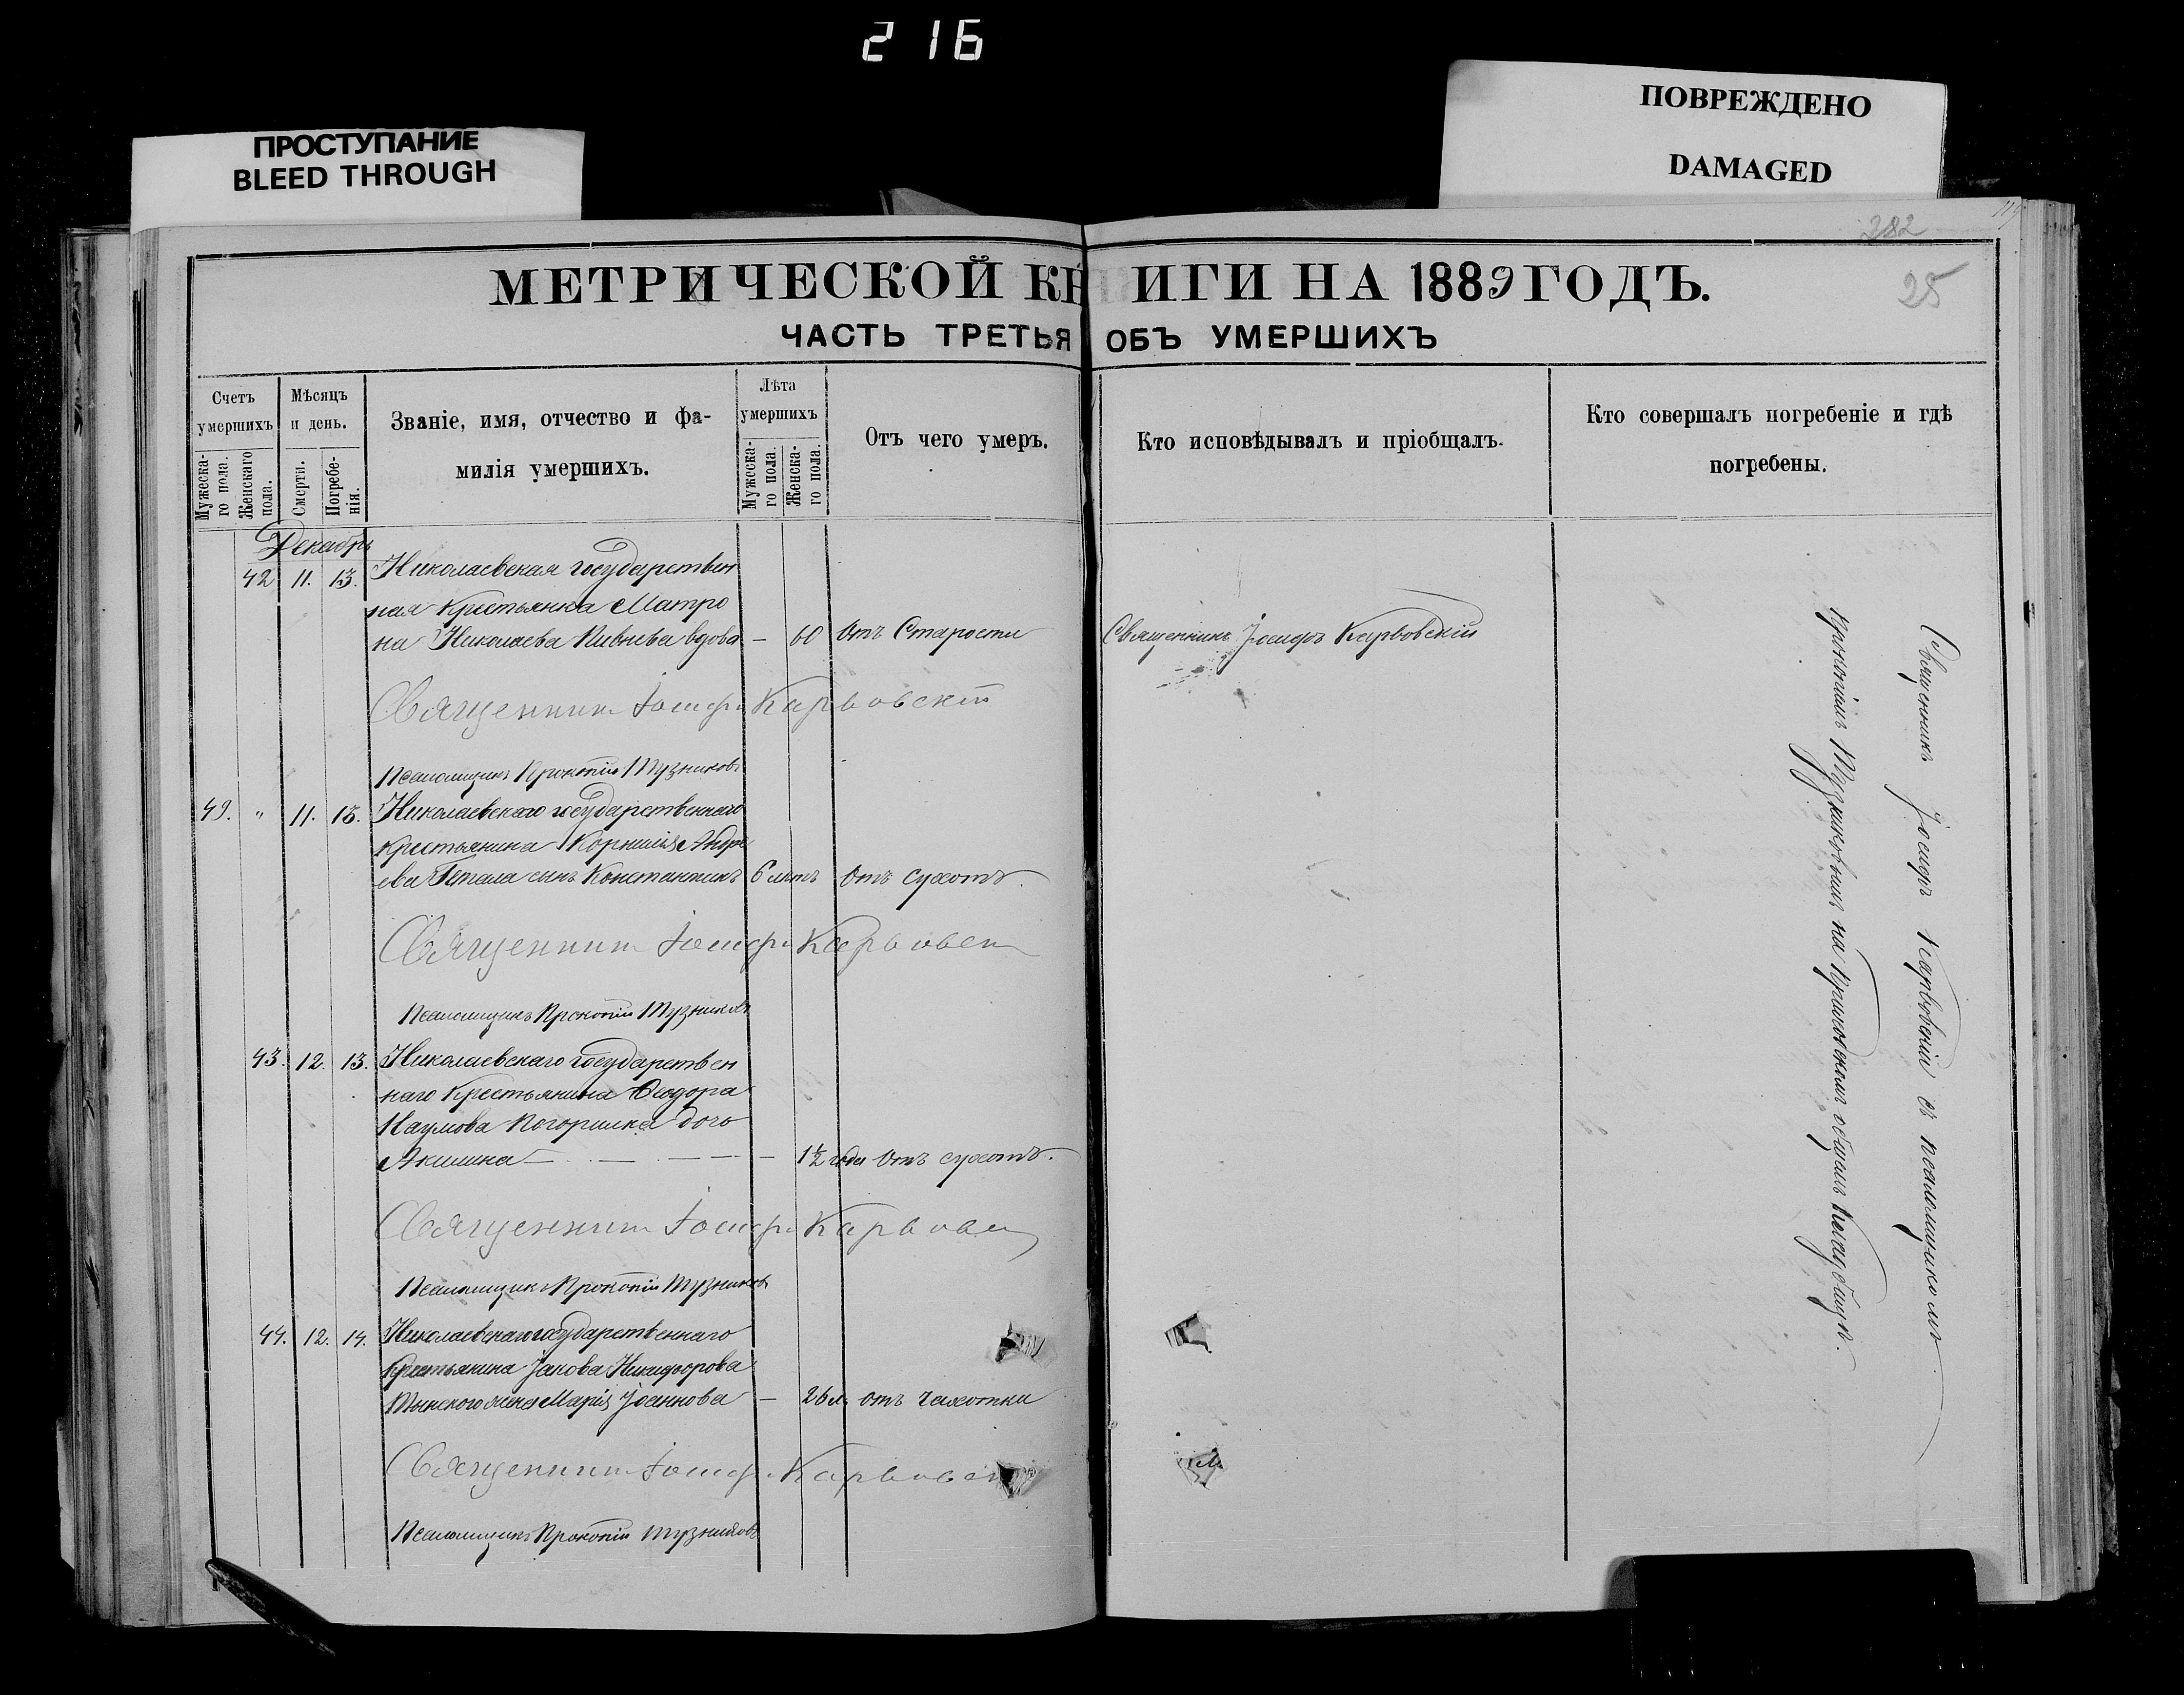 216
ПРОСТУПАНИЕ
BLEED THROUGH
ПОВРЕЖДЕНО
DAMAGED
282
25
МЕТРИЧЕСКОЙ КНИГИ НА 1889 ГОДЪ.
ЧАСТЬ ТРЕТЬЯ ОБЪ УМЕРШИХЪ
Счетъ умершихъ
Мужеска-го пола.
Женскаго пола.
Мѣсяцъ и день.
Смерти.
Погребе-нія.
Званіе, имя, отчество и фа-
милія умершихъ.
Лѣта умершихъ
Мужеска-го пола.
Женска-го пола.
Отъ чего умеръ.
Кто исповѣдывалъ и пріобщалъ.
Кто совершалъ погребеніе и гдѣ
погребены.
Декабрь
42 11. 13. Николаевская государствен
ная крестьянка Матро
на Николаева Пивнева вдова — 60 Отъ Старости Священникъ Іосифъ Карвовскій
Священникъ Іосифъ Карвовскій
Псаломщикъ Прокопій Тузниковъ
49. " 11. 13. Николаевскаго государственнаго
крестьянина Корнилія Андре
ева сынъ Константинъ 6 лѣтъ Отъ сухотъ.
Священникъ Іосифъ Карвовск
Псаломщикъ Прокопій Тузниковъ
43. 12. 13. Николаевскаго государствен
наго Крестьянина Ѳеодора
Наумова дочь
Акилина — 1½ года Отъ сухотъ.
Священникъ Іосифъ Карвовск
Псаломщикъ Прокопій Тузниковъ
44. 12. 14. Николаевскаго государственнаго
Крестьянина Іакова Никифорова
жена Марія Іоаннова — 26 л. отъ чахотки
Священникъ Іосифъ Карвовск
Псаломщикъ Прокопій Тузниковъ
Священникъ Іосифъ Карвовскій съ псаломщикомъ
Прокопіемъ Тузниковымъ на Приходскомъ общемъ кладбищѣ.